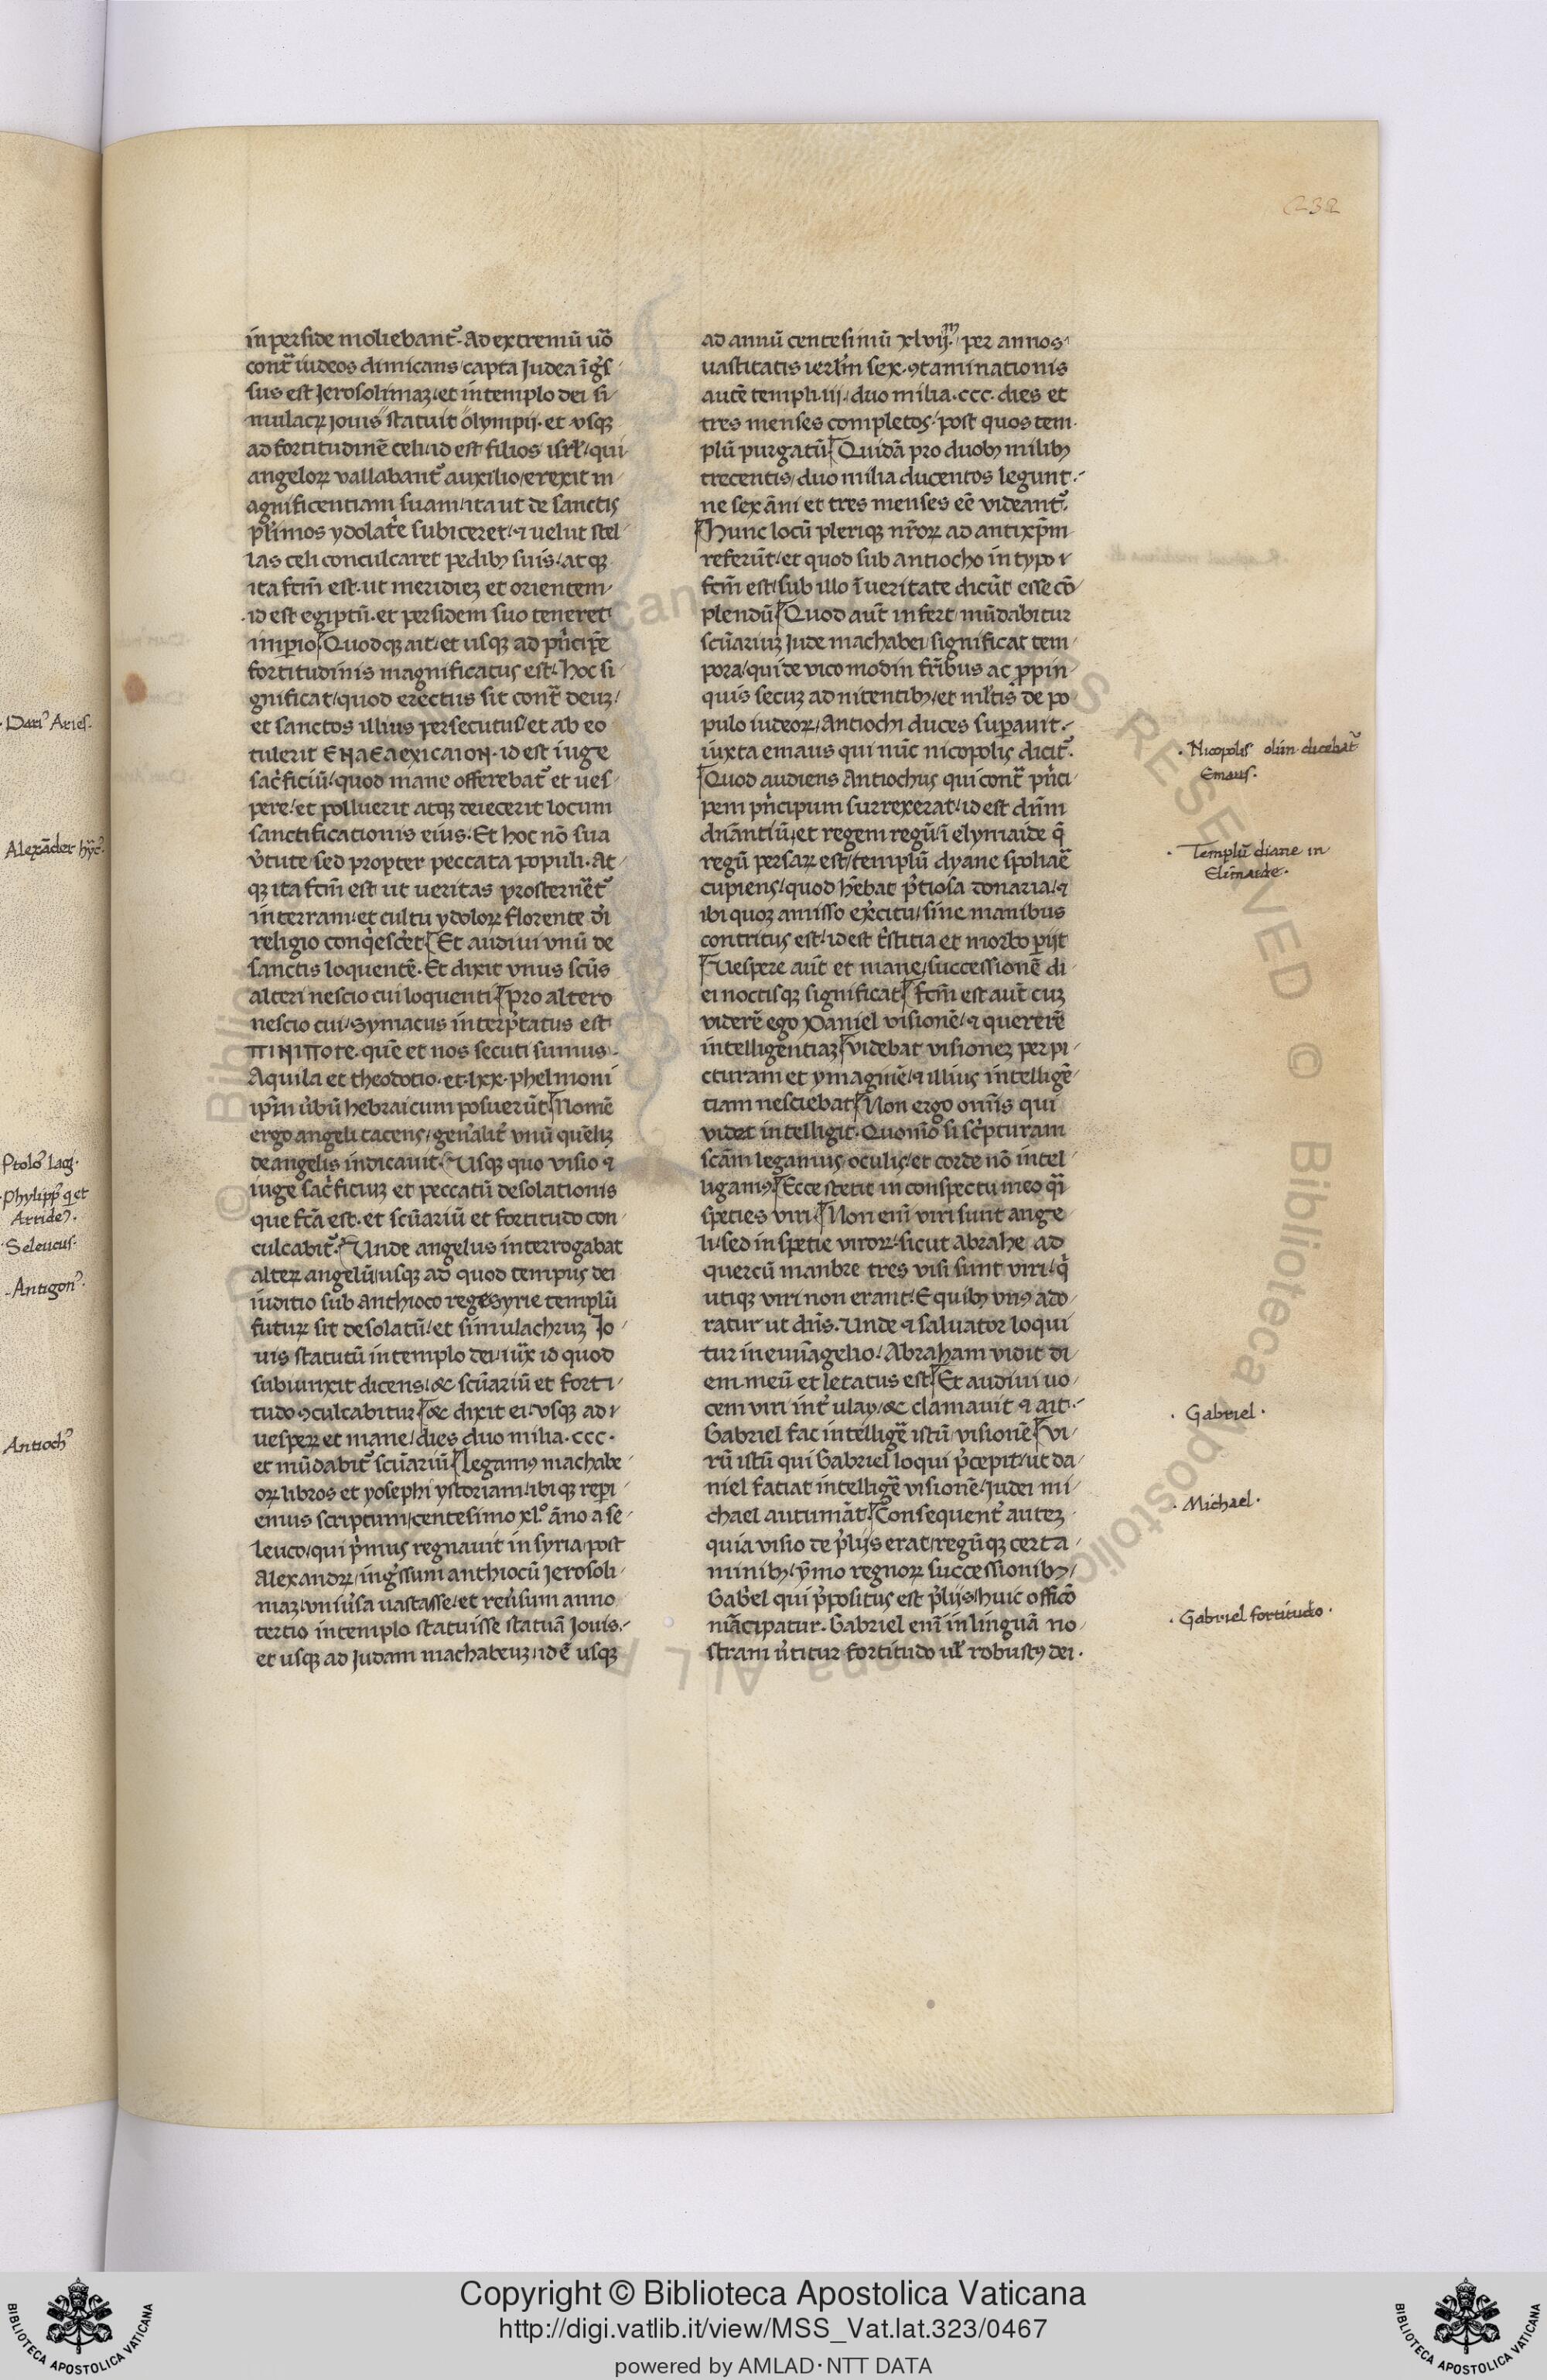 232
in perside moliebant᷑. Ad extremū uō
cont̄ iudeos dimicans/capta Judea īg̔s
sus est Jerosolimaꝫ/et in templo dei si
mulacꝝ iouis statuit olympij. et vsqꝫ
ad fortitudinē celi/id est filios isrł/qui
angeloꝝ vallabant᷑ auxilio/erexit m
agnificentiam suam/ita ut de sanctis
pl̄imos ydolat̄e subiceret/⁊ uelut stel
las celi conculcaret pedibꝫ suis/atqꝫ
ita fcm̄ est. ut meridieꝫ et orientem
.id est egiptū. et persidem suo teneret
imꝑio ¶Quodqꝫ ait/et usqꝫ ad pͥncipē
fortitudinis magnificatus est. hoc si
gnificat/quod erectus sit cont̄ deuꝫ/
et sanctos illius persecutus/et ab eo
tulerit ENAEAEXICAION. id est iuge
sacͥficiū/quod mane offerebat᷑ et ues
pere/et polluerit atqꝫ deiecerit locum
sanctificationis eius. Et hoc nō sua
v̓tute/sed propter peccata populi. At
qꝫ ita fcm̄ est ut ueritas prosternēt᷑
in terram/et cultu ydoloꝝ florente dī
religio conqͥesc̄et ¶Et audiui vnū de
sanctis loquentē. Et dixit vnus scūs
alteri nescio cui loquenti ¶pro altero
nescio cui/Symacus interp̄tatus est
ΠΙΝΙΠΟΤΕ. quē et nos secuti sumus.
Aquila et theodotio. et.lxx. phelmoni
ipm̄ ūbū hebraicum posuerūt ¶Nomē
ergo angeli tacens/gen̄alit̄ vnū quēlꝫ
de angelis indicauit. ¶Usqꝫ quo visio ⁊
iuge sacͥficiuꝫ et peccatū desolationis
que fcā est. et scūariū et fortitudo con
culcabit᷑. ¶Unde angelus interrogabat
alteꝝ angelū/usqꝫ ad quod tempus dei
iuditio sub anthioco rege syrie templū
futuꝝ sit desolatū/et simulachruꝫ Jo
uis statutū in templo dei/iux̄ id quod
subiunxit dicens/&c scūariū et forti
tudo ꝯculcabitur ¶&c dixit ei. vsqꝫ ad
uesperꝝ et mane/dies duo milia. ccc.
et mūdabit᷑ scūariū ¶Legamꝰ machabe
oꝝ libros et yosephi ystoriam/ibiqꝫ reꝑi
emus scriptum/centesimo xl.° āno a se
leuco/qui p̄mus regnauit in syria/post
Alexandꝝ/ing̔ssum anthiocū Jerosoli
maꝫ/vniūsa uastasse/et reūsum anno
tertio in templo statuisse statuā Jouis.
et usqꝫ ad Judam machabeuꝫ/id ē usqꝫ
ad annū centesimū xlvij.ᵐ/per annos
uastitatis ierlm̄ sex. ꝯtaminationis
autē templi.iij./duo milia. ccc. dies et
tres menses completos/post quos tem
plū purgatū ¶Quidā pro duobꝫ milibꝫ
trecentis/duo milia ducentos legunt.
ne sex āni et tres menses eē videant᷑.
¶Hunc locū pleriqꝫ nr̄oꝝ ad antixp̄m
referūt/et quod sub antiocho in typo
fcm̄ est/sub illo ī ueritate dicūt esse cō
plendū ¶Quod aūt infert mūdabitur
scūariuꝫ Jude machabei/significat tem
pora/qui de vico modin fr̄ibus ac ꝓpin
quis secuꝫ adnitentibꝫ/et mlꝉtis de po
pulo iudeoꝝ/Antiochi duces suꝑauit.
iuxta emaus qui nūc nicopolis dicit᷑.
¶Quod audiens Antiochus qui cont̄ pͥnci
pem pͥncipum surrexerat/id est dn̄m
dnāntiū/et regem regū/ī elymaide q̄
regū persaꝝ est/templū dyane spoliaē
cupiens/quod hēbat p̄tiosa donaria/⁊
ibi quoꝫ amisso ex̄citu/sine manibus
contritus est/id est tͥstitia et morbo ꝑijt
¶Uespere aūt et mane/successionē di
ei noctisqꝫ significat ¶fcm̄ est aūt cuꝫ
viderē ego Daniel visionē/⁊ quererē
intelligentiaꝫ ¶videbat visioneꝫ per pi
cturam et ymaginē/⁊ illius intelligē
tiam nesciebat ¶Non ergo omīs qui
videt intelligit. Quomō si scͥpturam
scām legamus oculis/et corde nō intel
ligamꝰ ¶Ecce stetit in conspectu meo qͣi
spēties viri. ¶Non enī viri sunt ange
li/sed in spētie viroꝝ. sicut Abrahe ad
quercū manbre tres visi sunt viri/qͥ
utiqꝫ viri non erant/E quibꝫ vnꝰ ado
ratur ut dn̄s. Unde ⁊ saluator loqui
tur in euuāgelio/Abraham vidit di
em meū et letatus est ¶Et audiui uo
cem viri int̄ ulay/&c clamauit ⁊ ait.
Gabriel fac intelligē istū visionē ¶Vi
rū istū qui Gabriel loqui p̄cepit/ut da
niel fatiat intelligē visionē/Judei mi
chael autumāt ¶Consequent̄ auteꝫ
quia visio de p̄lijs erat/regūqꝫ certa
minibꝫ/ȳmo regnoꝝ successionibꝫ/
Gab̄el qui p̄positus est p̄lijs/huic officō
māncipatur. Gabriel enī in linguā no
stram v̄titur fortitudo ul̄ robustꝰ dei.
. Nicopolis olim dicebat᷑
Emaus.
. Templū diane in
Elimaide.
. Gabriel .
. Michael .
. Gabriel fortitudo .
. Dariꝰ Aries.
Alexāder
Ptoloꝰ lagi.
Phylippꝰ q et
Arrideꝰ.
Seleucus.
. Antigonꝰ.
Antiochꝰ
Copyright © Biblioteca Apostolica Vaticana
http://digi.vatlib.it/view/MSS_Vat.lat.323/0467
powered by AMLAD·NTT DATA
BIBLIOTECA APOSTOLICA VATICANA
BIBLIOTECA APOSTOLICA VATICANA